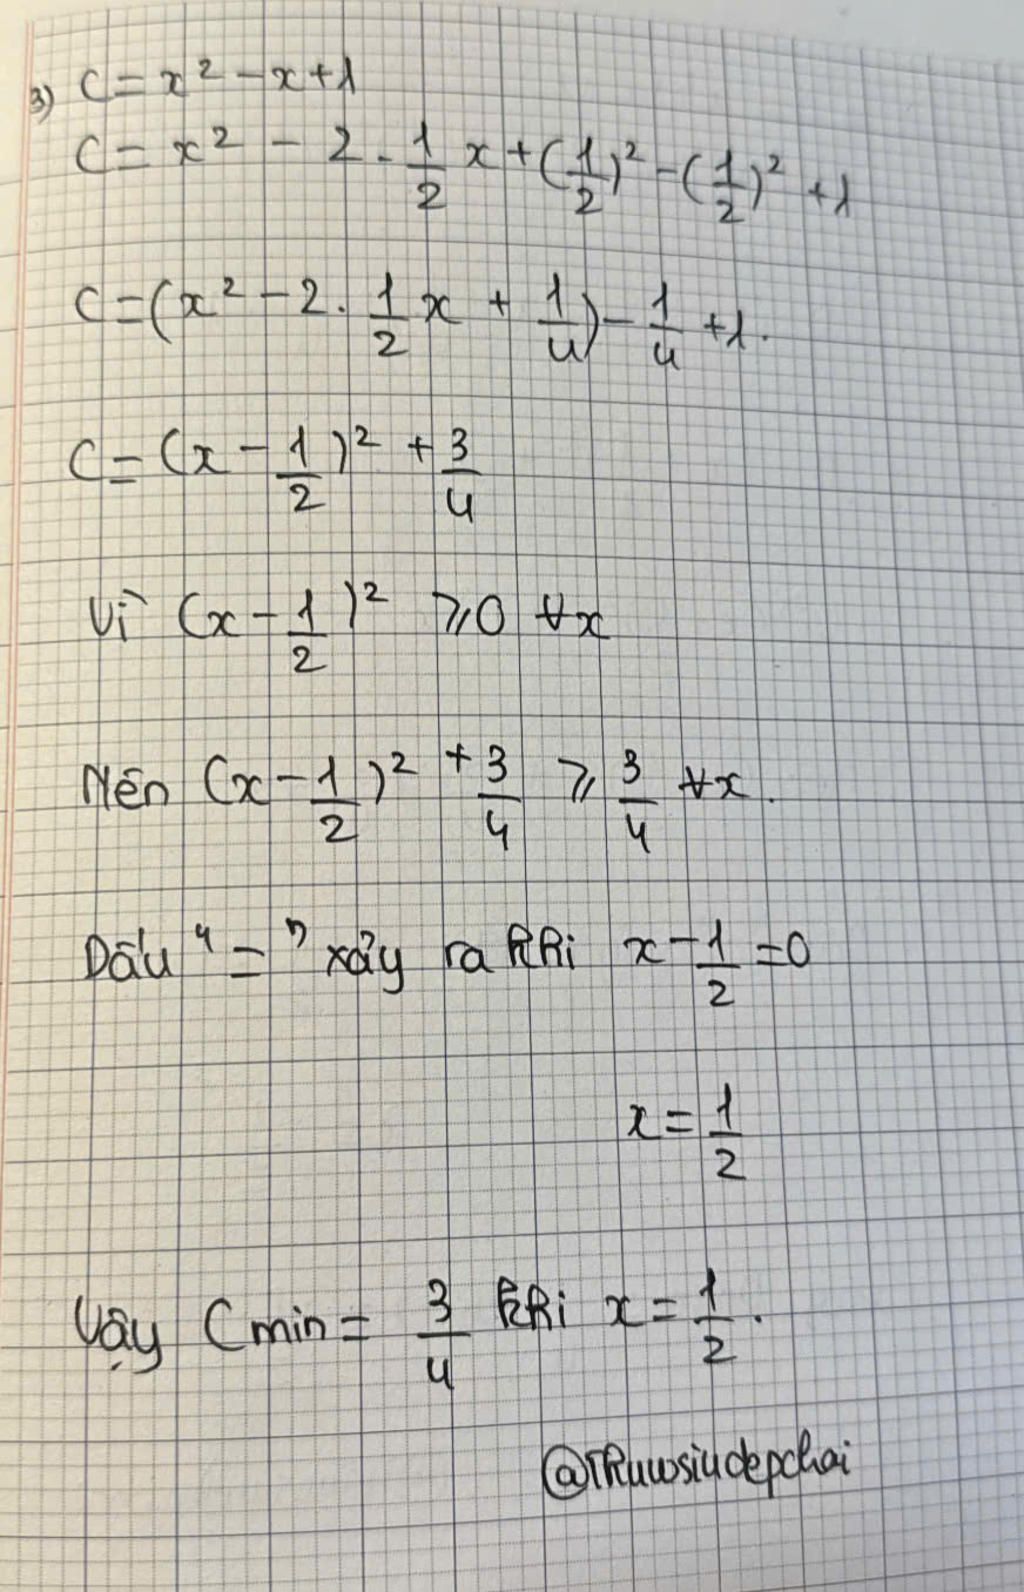 3) C = x² - x + 1
C = x² - 2 . 1/2 x + (1/2)² - (1/2)² + 1
C = (x² - 2 . 1/2 x + 1/4) - 1/4 + 1.
C = (x - 1/2)² + 3/4
Vì (x - 1/2)² ⩾ 0 ∀x
Nên (x - 1/2)² + 3/4 ⩾ 3/4 ∀x.
Dấu "=" xảy ra khi x - 1/2 = 0
x = 1/2
Vậy Cmin = 3/4 khi x = 1/2.
@Thuwsiudepchai